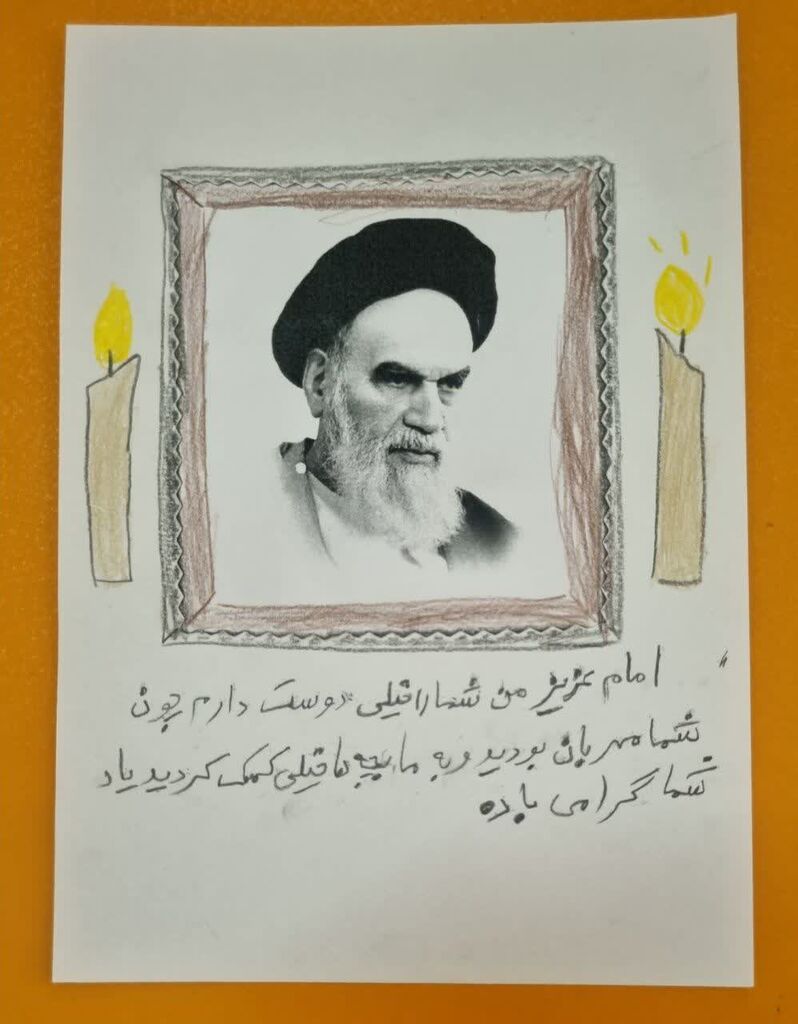 امام عزیز من شما را خیلی دوست دارم چون
شما مهربان بودید و به ما بچه ها خیلی کمک کردید یاد
شما گرامی باده